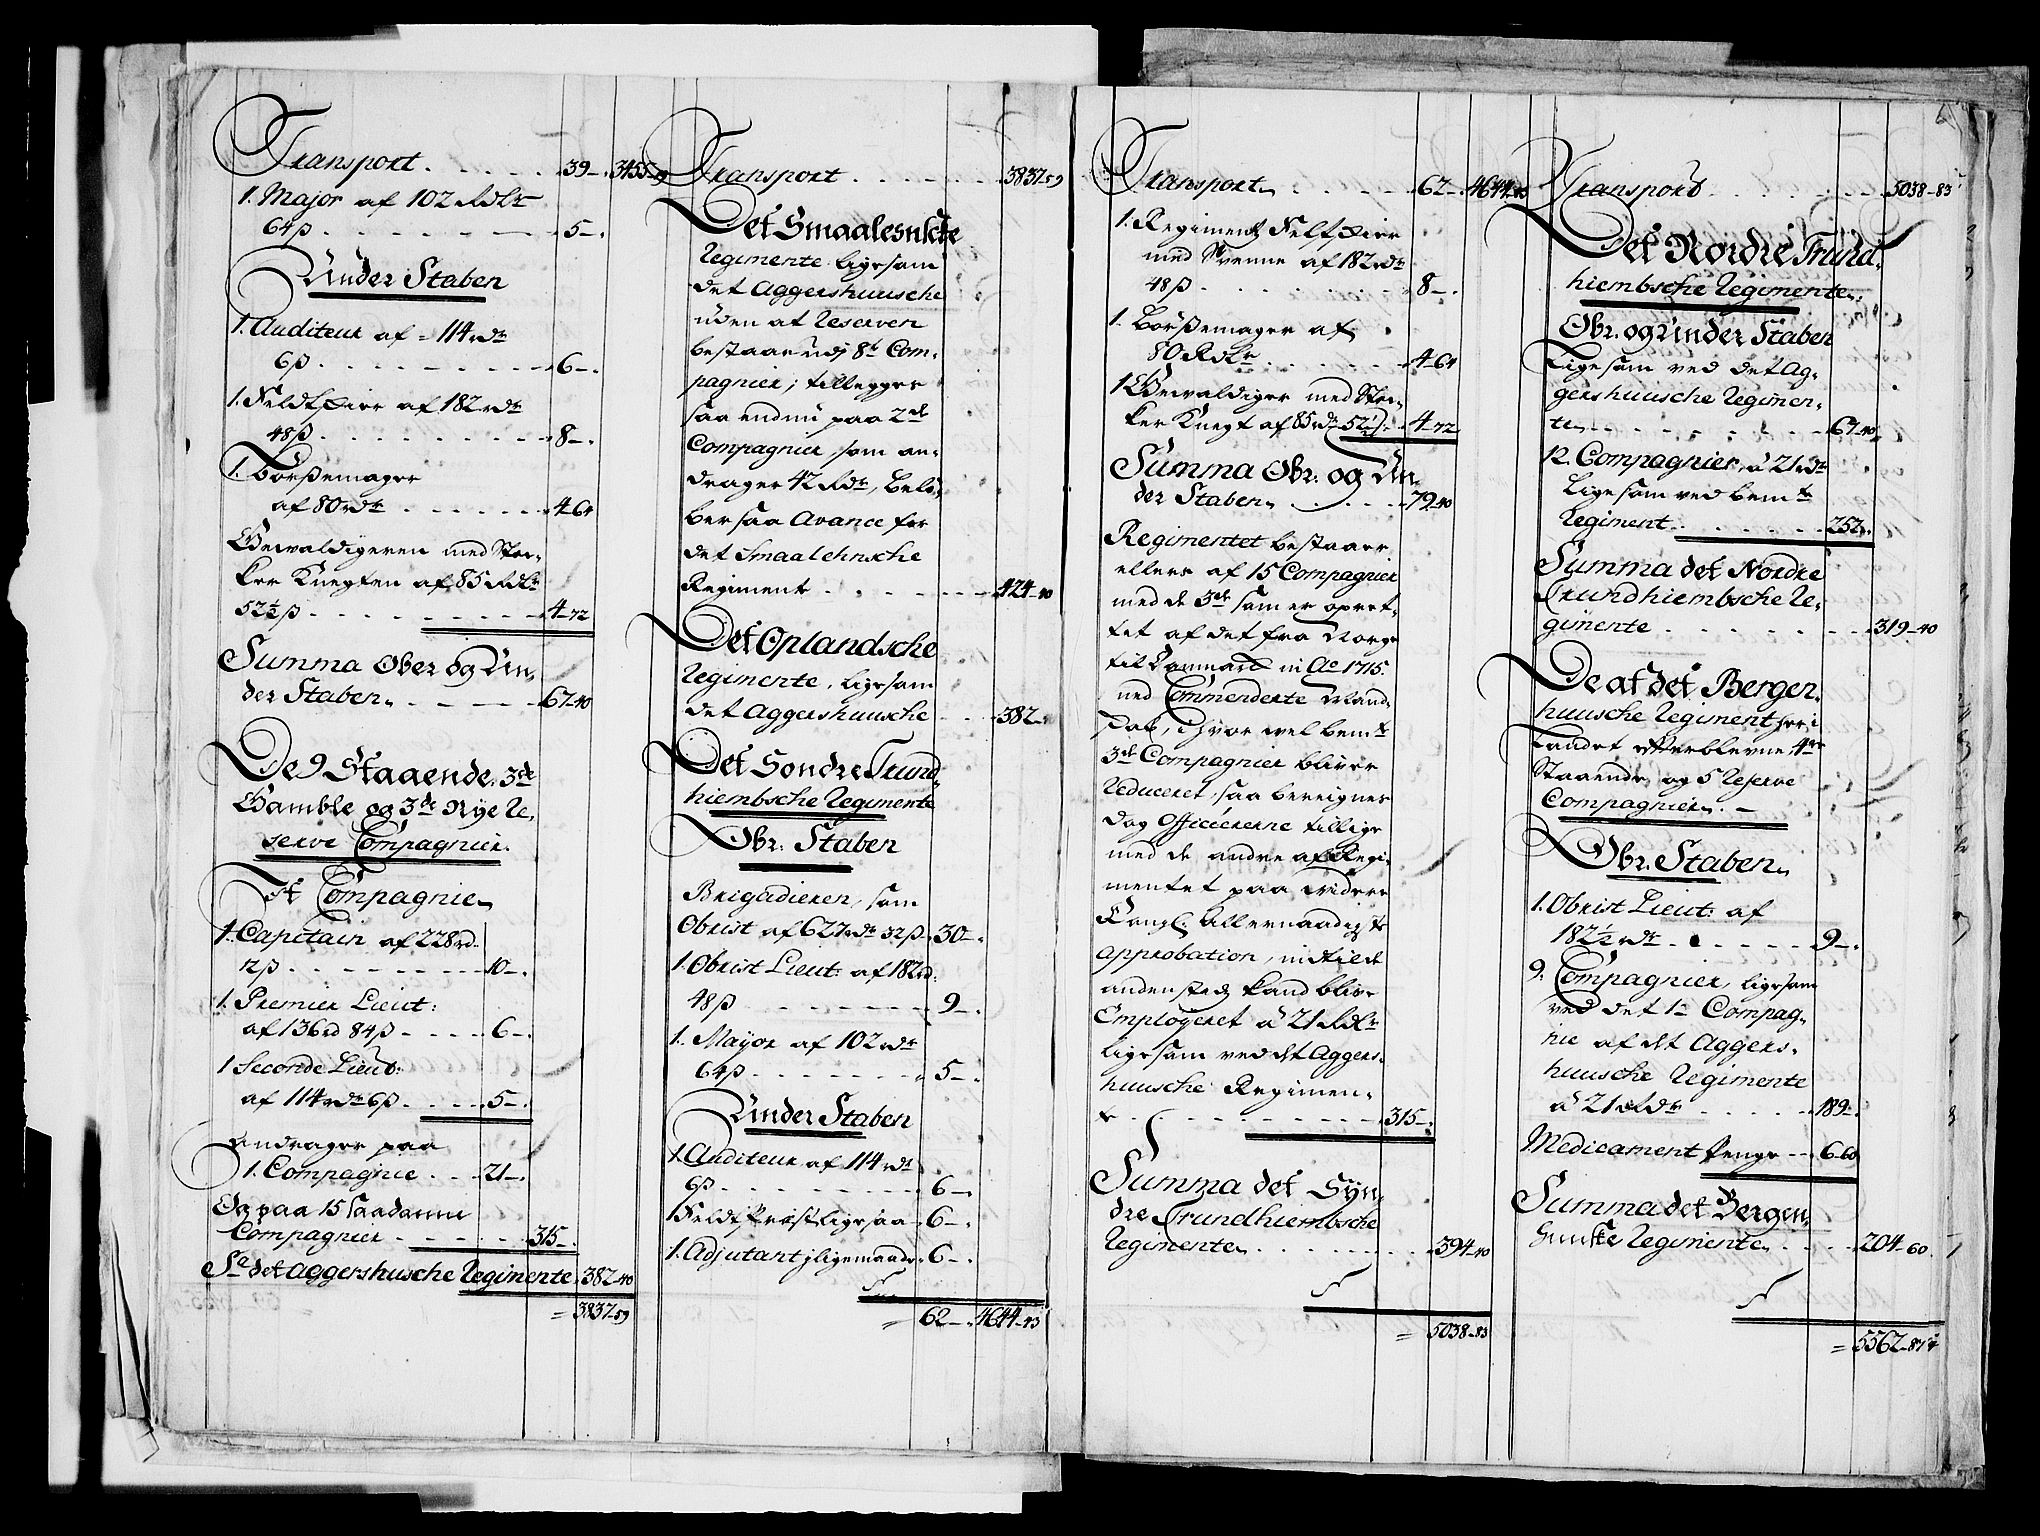 Transport . . . . . . 39 — . 3455-59
1. Major af 102 Rdlr
64 ß . . . . . . . 5 — .
Under Staben
1. Auditeur af 114 rdr
6 ß . . . . . . . . 6 — .
1. Feldtskier af 182 rdr
48 ß . . . . . . . 8 — .
1. Börßemager
af 80 rdr . . . . . . 4-64
Gewaldigeren med Stor-
ker Knegten af 85 Rdlr
52½ ß . . . . . . . 4-72
Summa Ober og Un-
der Staben . . . . . 67-40
De 9 Staaende, 3de
Gamble og 3de Nye Re-
serve Compagnier.
Et Compagnie
1. Capitain af 228 rd
12 ß . . . . . . . 10 — .
1. Premier Lieut:
af 136 rd 84 ß . . . . 6 — .
1 Seconde Lieut:
af 114 rdr 6 ß . . . . 5 — .
Andrager paa
1. Compagnie . . . 21 — .
Og paa 15 saadanne
Compagnier . . . . . 315 — .
Sa det Aggershusche Regimente 382-40
= 3837-59
Transport . . . . . . 3837-59
Det Smaalenske
Regimente ligesom
det Aggershuusche
uden at Reserven
bestaar udj 8te Com-
pagnier, tillegges
saa endnu paa 2de
Compagnier, som an-
drager 42 Rdr, belö-
ber saa Avance for
det Smaalehnsche
Regiment . . . . . . 424-40
Det Oplandsche
Regimente, ligesom
det Aggershuusche . . . 382-
Det Sondre Trund-
hiembsche Regimente
Obr: Staben
Brigadieren, som
Obrist af 627 rdr 32 ß . 30 — .
1. Obrist Lieut: af 182 rd:
48 ß . . . . . . . 9 — .
1. Mayor af 102 rdr
64 ß . . . . . . . 5 — .
Under Staben
1. Auditeur af 114 rdr
6 ß . . . . . . . . 6 — .
1 Feldt Præst ligesaa . 6 — .
1. Adjutant ligemaade . 6 — .
= 62 — . 4644-43
Transport . . . . . 62 — 4644-43
1. Regiments Feltskier
med Svenne af 182 rdr
48 ß . . . . . . . 8 — .
1. Börßemager af
80 Rdlr . . . . . . 4-64
1. Gewaldiger med Stor-
ker Knegt af 85 rdr 52½ . 4-72
Summa Obr: og Un-
der Staben . . . . . 79-40
Regimentet bestaaer
ellers af 15 Compagnier
med de 3de som er opret-
tet af det fra Norge
til Danmark in Ao 1715
ned Commenderte Mand-
skab, ihvor vel bemte
3de Compagnier bliver
Reduceret, saa beregnes
dog Officiererne tillige
med de andre af Regi-
mentet paa videre
Kongl. Allernaadigste
approbation, indtil de
anden steds kand blive
Employeret á 21 Rdlr
ligesom ved det Aggers-
huusche Regimen-
te . . . . . . . . 315 — .
Summa det Syn-
dre Trundhiembsche
Regimente . . . . . . 394-40
= 5038-83
Transport . . . . . . 5038-83
Det Nordre Trund-
hiembsche Regimente.
Obr: og Under Staben
Ligesom ved det Ag-
gershuusche Regimen-
te . . . . . . . . 67-40
12. Compagnier, á 21 rdr
ligesom ved bemte
Regiment . . . . . . 252 — .
Summa det Nordre
Trundhiembsche Re-
gimente . . . . . . . 319-40
De af det Bergen-
huusche Regiment her i
Landet efterblevne 4re
Staaende og 5 Reserve
Compagnier. —
Obr: Staben
1. Obrist Lieut: af
182½ rdr . . . . . . 9 — .
9. Compagnier, ligesom
ved det 1te Compag-
nie af det Aggers-
huusche Regimente
á 21 Rdr . . . . . . 189 — .
Medicament Penge — . 6-60
Summa det Bergen-
huuske Regimente . . . . 204-60
= 5562-87